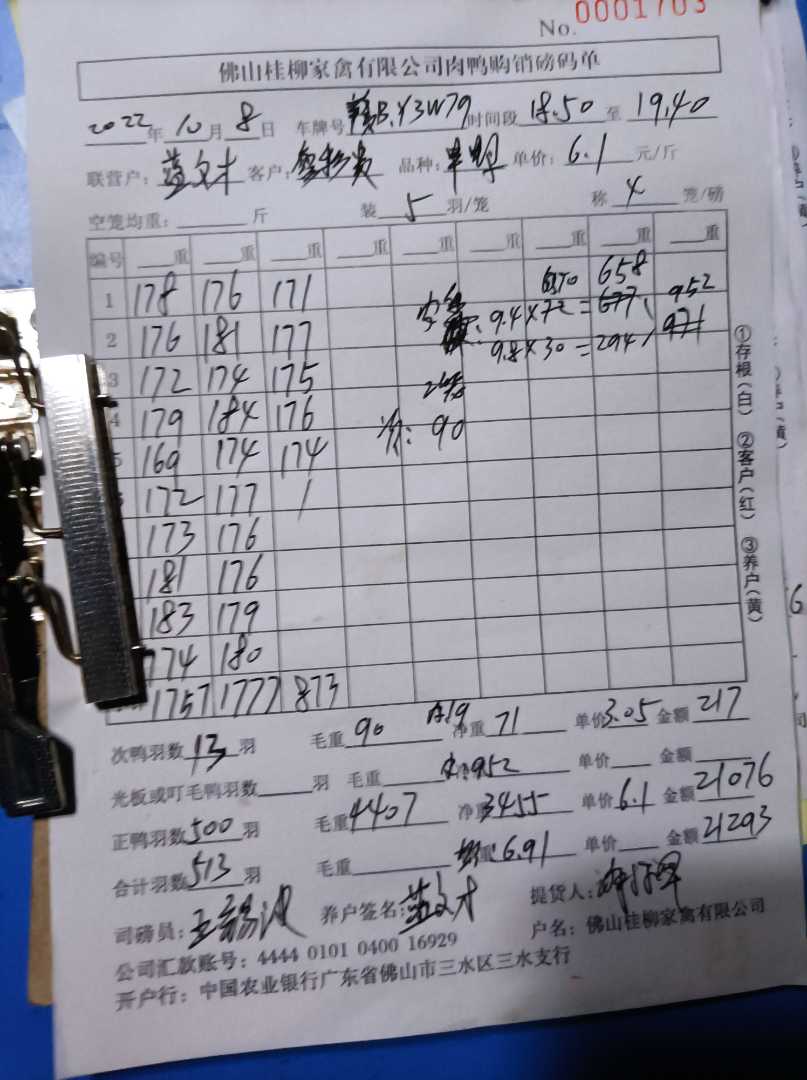 No. 0001703
佛山桂柳家禽有限公司肉鸭购销磅码单
2022年10月8日 车牌号 B.Y3W79 时间段 18.50 至 19.40
联营户: 蓝文才 客户: 品种: 单价: 6.1 元/斤
空笼均重: 斤 装 5 羽/笼 称 4 笼/磅
编号 重 重 重 重 重 重 重 重 重
1 178 176 171 658 952
2 176 181 177 9.4×72=677 971
3 172 174 175 9.8×30=294
4 179 184 176
5 169 174 174 次: 90
172 177 /
173 176
181 176
183 179
174 180
1757 1777 873
次鸭羽数 13 羽 毛重 90 19 净重 71 单价 3.05 金额 217
光板或叮毛鸭羽数 羽 毛重 净 952 单价 金额
正鸭羽数 500 羽 毛重 4407 净重 3455 单价 6.1 金额 21076
合计羽数 513 羽 毛重 重 6.91 单价 金额 21293
司磅员: 养户签名: 蓝文才 提货人:
公司汇款账号: 4444 0101 0400 16929 户名: 佛山桂柳家禽有限公司
开户行: 中国农业银行广东省佛山市三水区三水支行
①存根(白) ②客户(红) ③养户(黄)